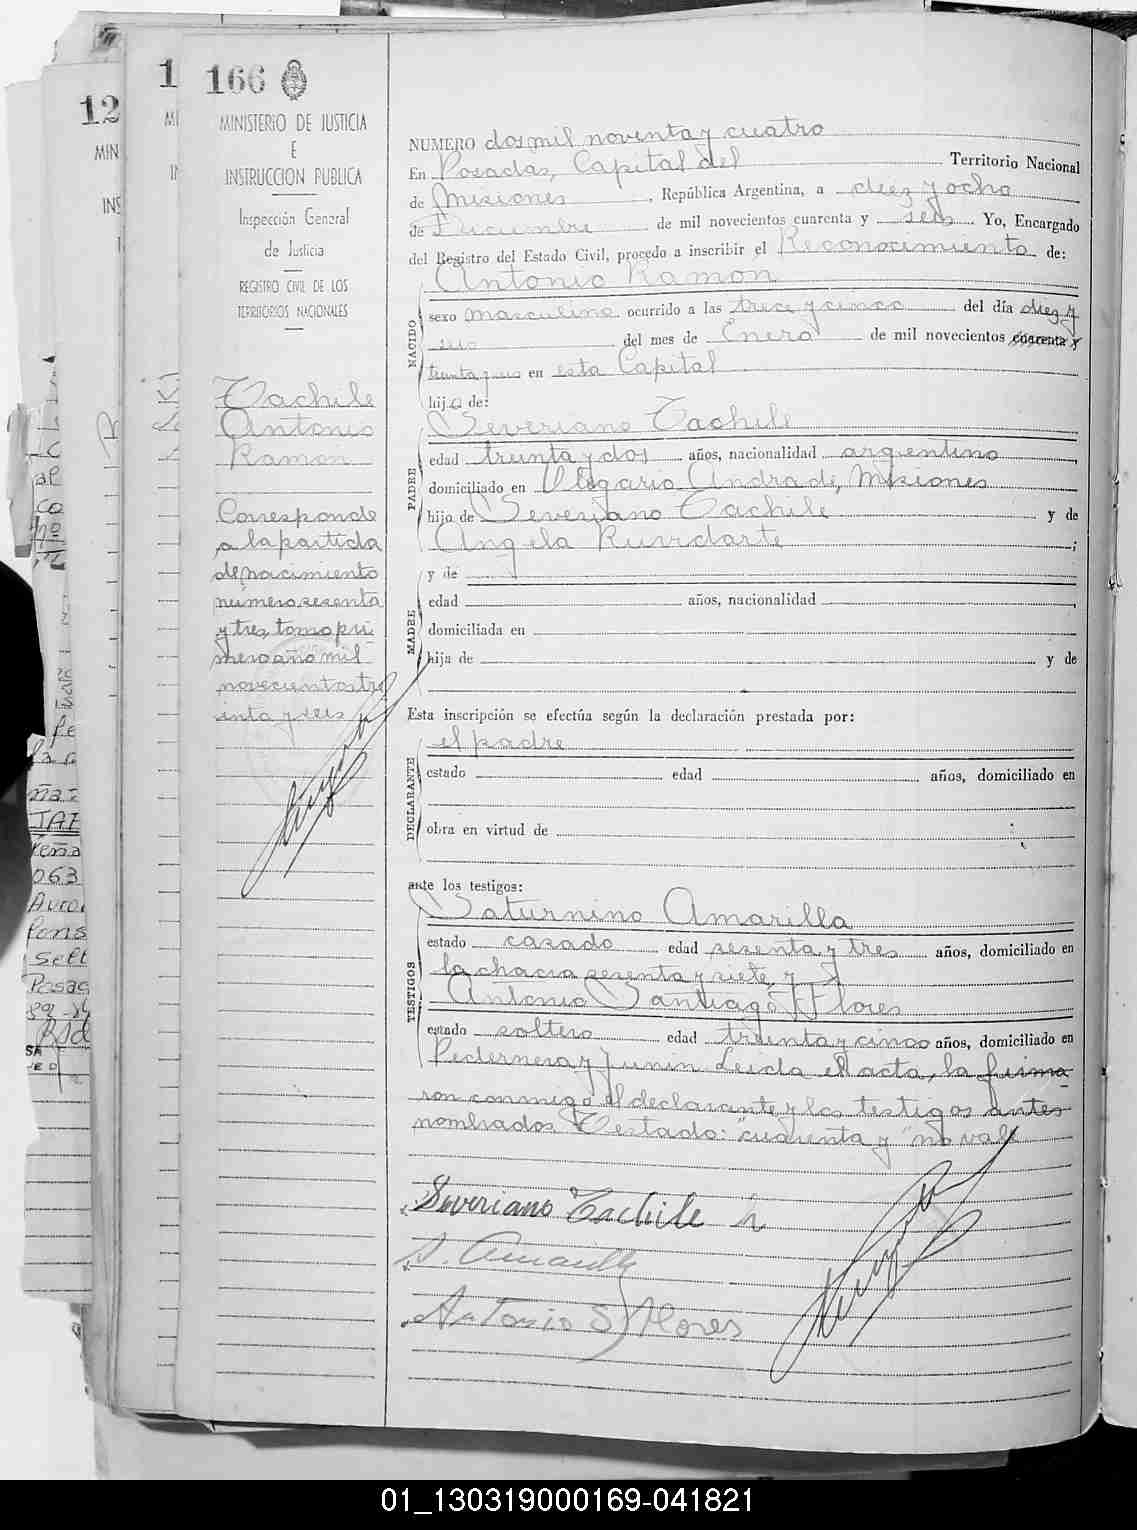 166
MINISTERIO DE JUSTICIA
E
INSTRUCCION PUBLICA
Inspección General
de Justicia
REGISTRO CIVIL DE LOS
TERRITORIOS NACIONALES
Tachile
Antonio
Ramon
Corresponde
a la partida
de nacimiento
número sesenta
y tres, tomo pri
mero año mil
novecientos tre
inta y seis
NUMERO dos mil noventa y cuatro
En Posadas, Capital del Territorio Nacional
de Misiones, República Argentina, a diez y ocho
de Diciembre de mil novecientos cuarenta y seis Yo, Encargado
del Registro del Estado Civil, procedo a inscribir el Reconocimiento de:
Antonio Ramon
NACIDO
sexo masculino ocurrido a las trece y cinco del día diez y
seis del mes de Enero de mil novecientos cuarenta y
treinta y seis en esta Capital
hijo de:
Severiano Tachile
PADRE
edad treinta y dos años, nacionalidad argentino
domiciliado en Olegario Andrade, Misiones
hijo de Severiano Tachile y de
Angela Ruvidarte;
MADRE
y de
edad años, nacionalidad
domiciliada en
hija de y de
Esta inscripción se efectúa según la declaración prestada por:
el padre
DECLARANTE
estado edad años, domiciliado en
obra en virtud de
ante los testigos:
Saturnino Amarilla
TESTIGOS
estado casado edad sesenta y tres años, domiciliado en
la chacra sesenta y siete, y
Antonio Santiago Flores
estado soltero edad treinta y cinco años, domiciliado en
Pedernera y Junin Leida el acta, la firma
ron conmigo el declarante y los testigos antes
nombrados Testado: "cuarenta y" no vale
Severiano Tachile h
S. Amarilla
Antonio S Flores
12
MIN
INS
1
MI
IN
al
co
JAF
063
Pasag
01_130319000169-041821